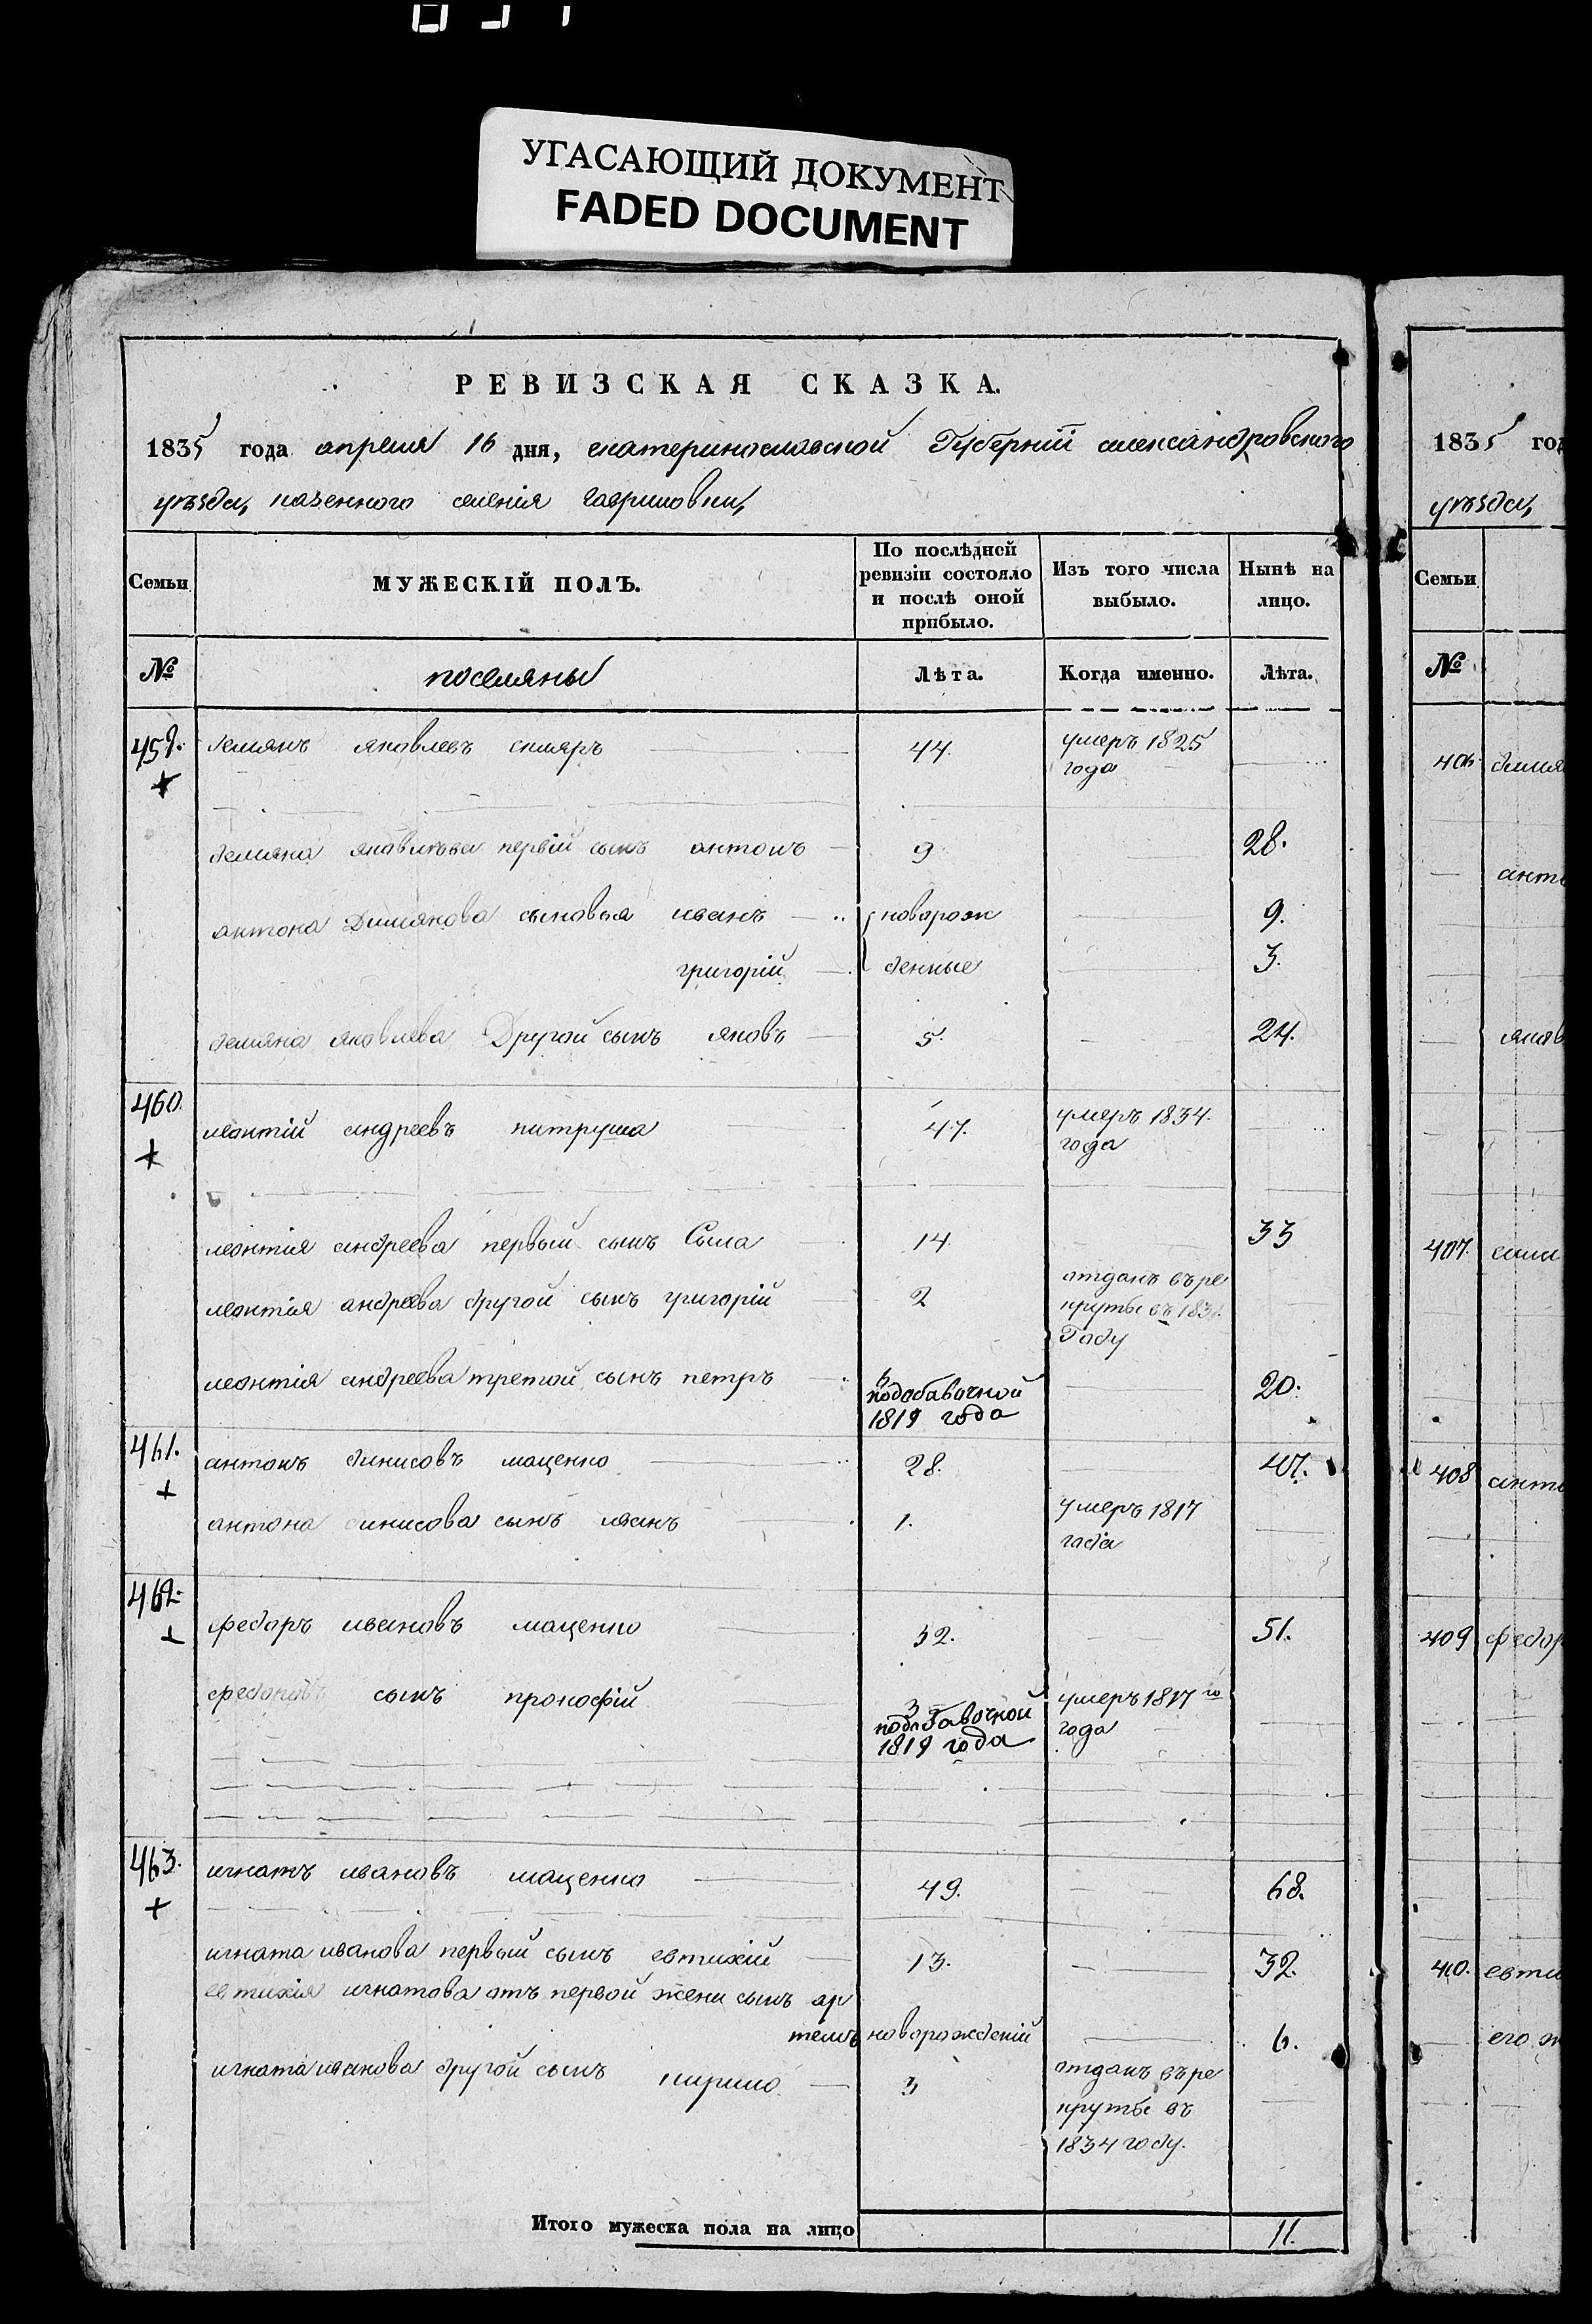 УГАСАЮЩИЙ ДОКУМЕНТ
FADED DOCUMENT
РЕВИЗСКАЯ СКАЗКА.
1835 года апреля 16 дня, екатеринославской Губерніи александровского
уѣзда, казенного селенія гавриловки,
Семьи
МУЖЕСКІЙ ПОЛЪ.
По послѣдней ревизіи состояло и послѣ оной прибыло.
Изъ того числа выбыло.
Нынѣ на лицо.
№ поселяны Лѣта. Когда именно. Лѣта.
459. демянъ яковлевъ скляръ 44. умеръ 1825
года
демяна яковлева первій сынъ антонъ 9 28.
антона Демянова сыновья иванъ новорож 9.
григорій денные 3.
демяна яковлева Другой сынъ яковъ 5. 24.
460. леонтій андреевъ петруша 47. умеръ 1834.
года
леонтія андреева первый сынъ Сыла 14 33
леонтія андреева другой сынъ григорій 2 отданъ въ ре
круты въ 183
Году
леонтія андреева третой сынъ петръ 3 20.
подобавочной
1819 года
461. антонъ динисовъ маценко 28. 47.
антона динисова сынъ иванъ 1. умеръ 1817
года
462. федоръ ивановъ маценко 32. 51.
федоровъ сынъ прокофій 3 умеръ 1817го
подобавочной года
1819 года
463. игнатъ ивановъ маценко 49. 68.
игната иванова первый сынъ евтихій 13. 32.
евтихія игнатова отъ первой жени сынъ ар
темъ новорожденій 6.
игната иванова другой сынъ кирило 3 отданъ въ ре
круты въ
1834 году.
Итого мужеска пола на лицо 11.
1835 год
уѣзда,
Семьи
№
406. демя
анто
яков
407.
408 анто
409 федор
410. евти
его ж